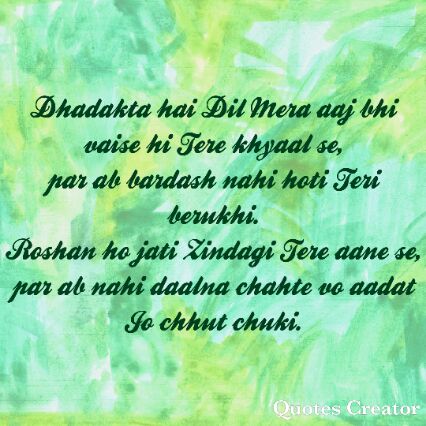 Dhadakta hai Dil Mera aaj bhi
vaise hi Tere khyaal se,
par ab bardash nahi hoti Teri
berukhi.
Roshan ho jati Zindagi Tere aane se,
par ab nahi daalna chahte vo aadat
Jo chhut chuki.
Quotes Creator